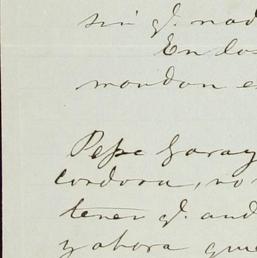 sin q. nad
En los
mandan e
Pepe Garay
Cordova, no
tener q. and
y ahora que